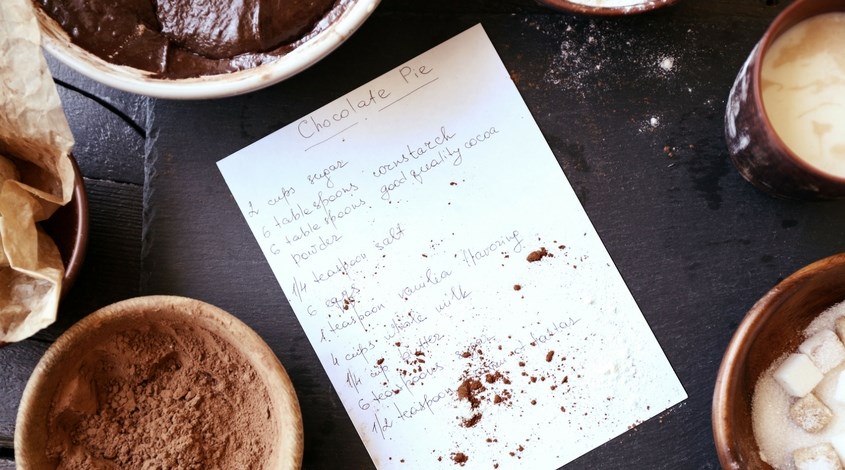 Chocolate Pie
2 cups sugar
6 tablespoons cornstarch
6 tablespoons good quality cocoa
powder
1/4 teaspoon salt
6 eggs
1 teaspoon vanilla flavoring
4 cups whole milk
1/4 cup butter
6 teaspoons sugar
1/2 teaspoon tartar